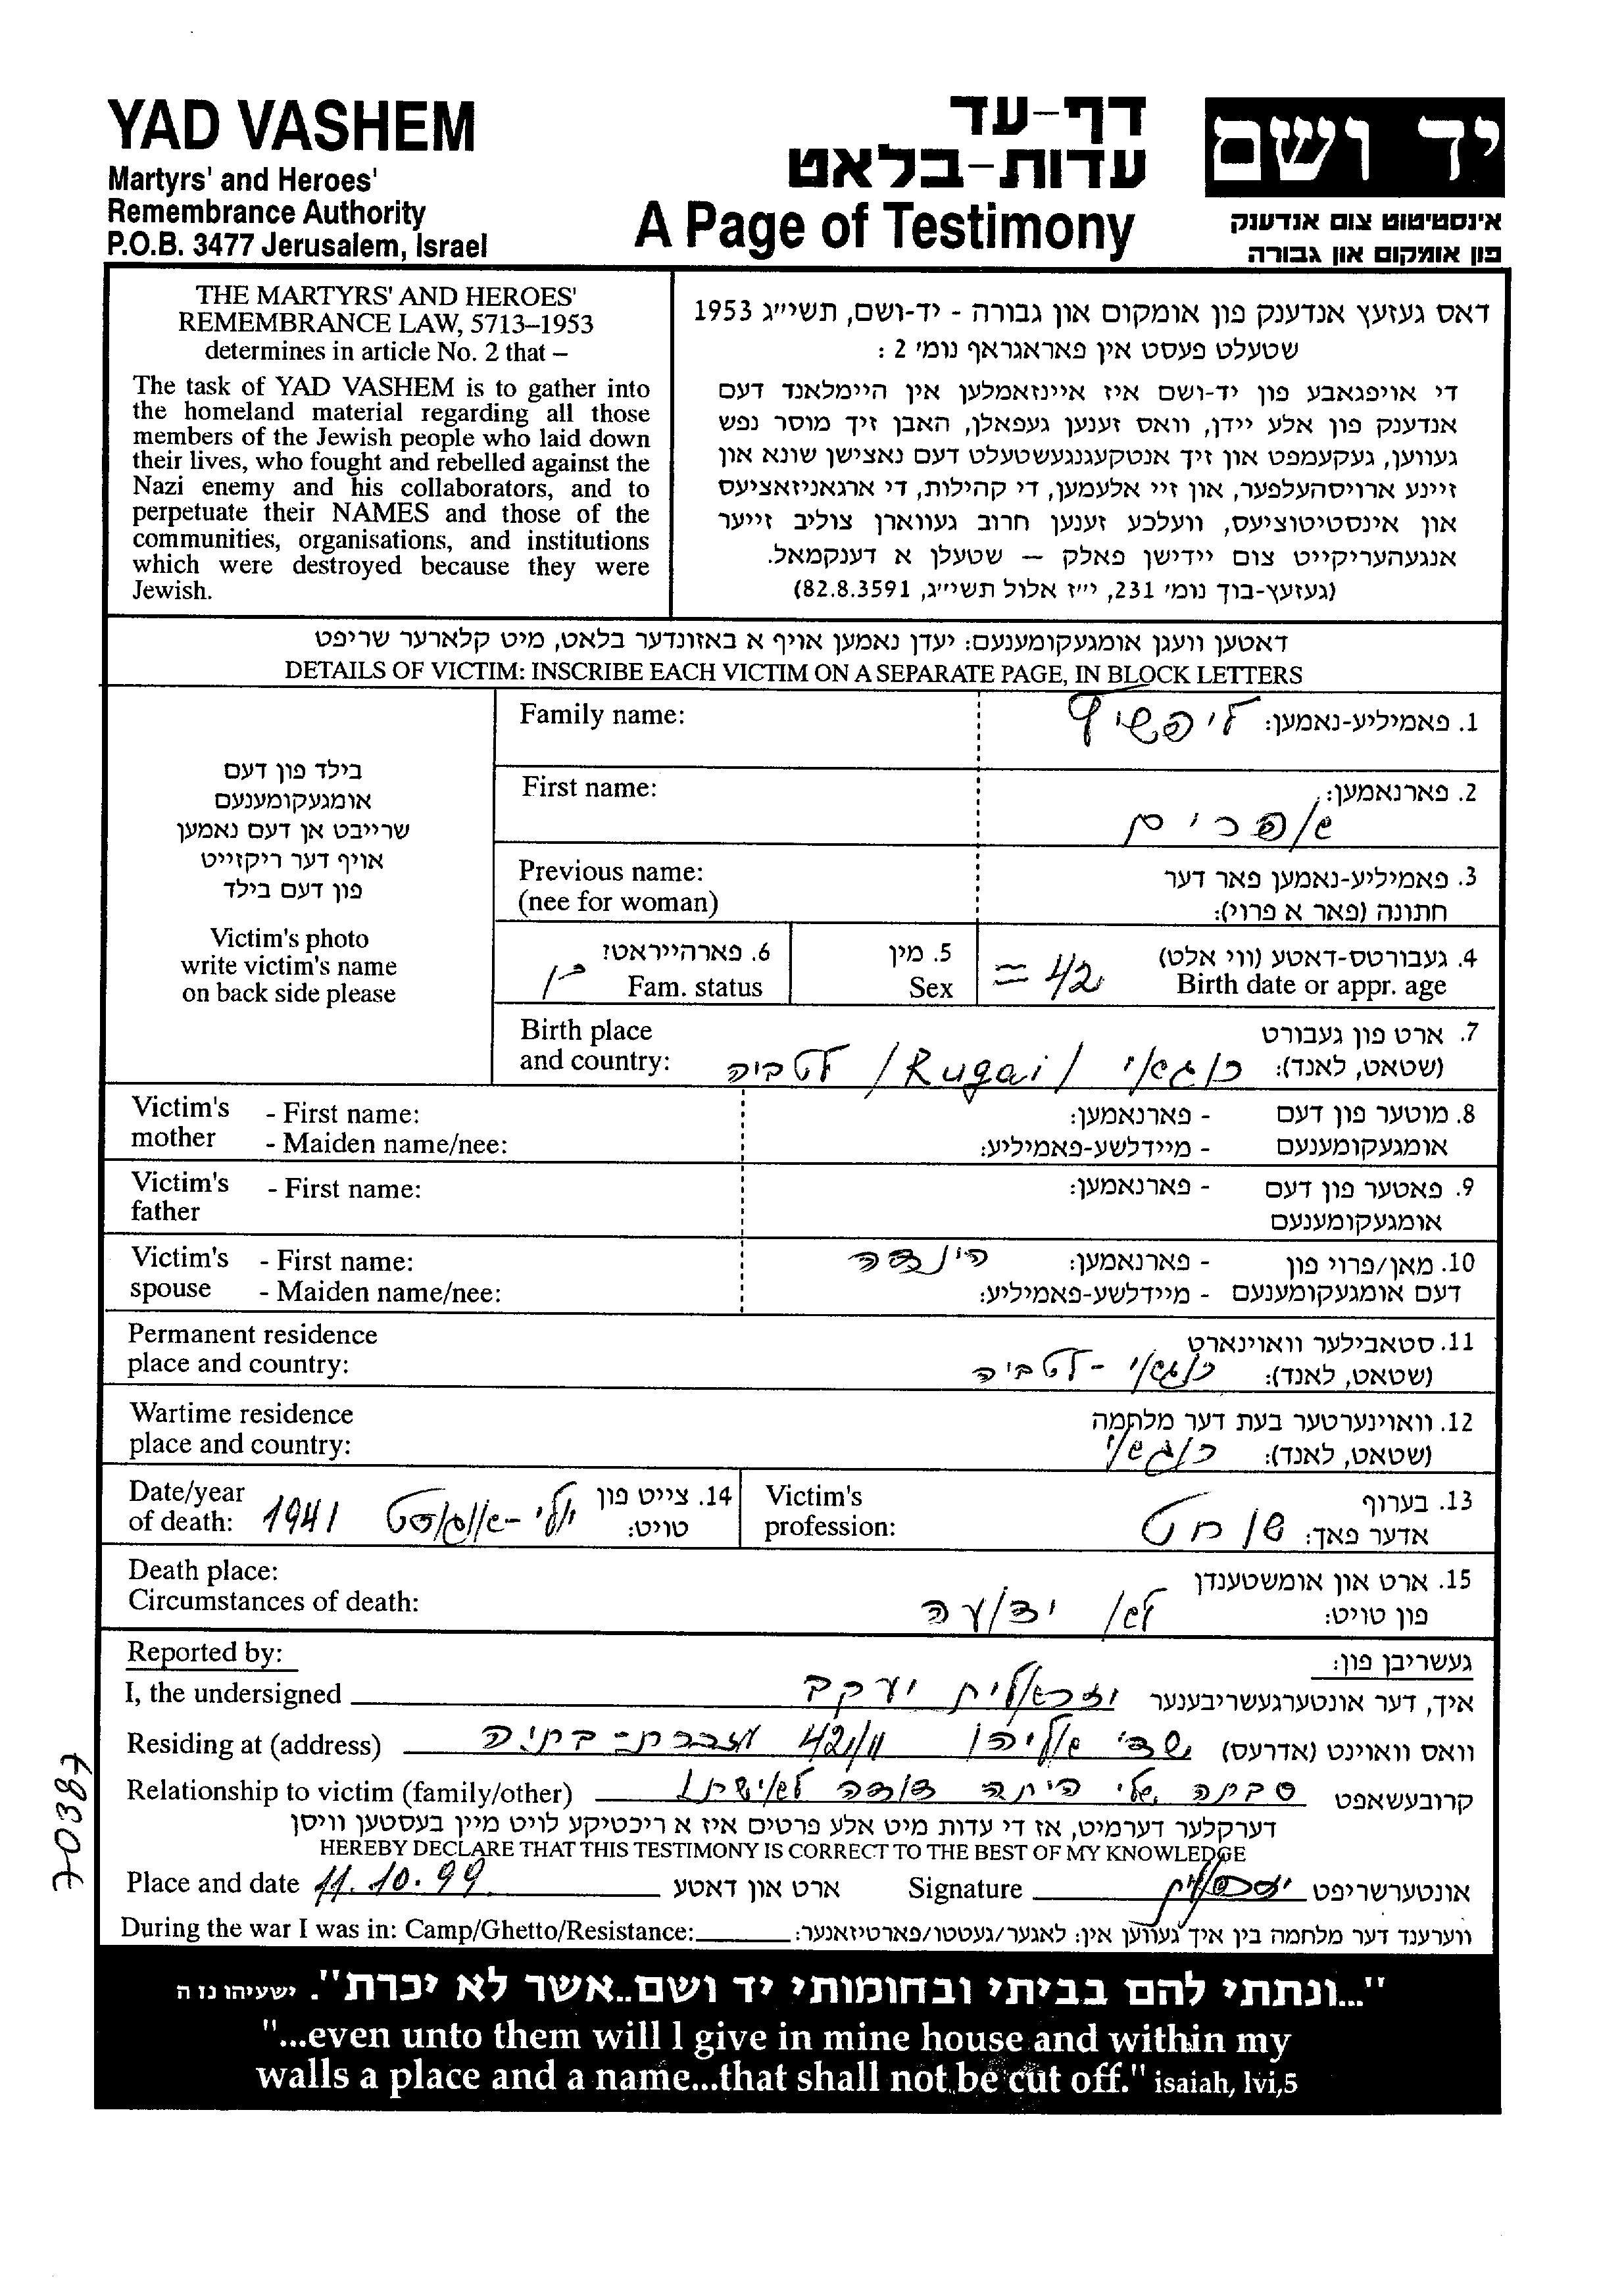 YAD VASHEM
Martyrs' and Heroes'
Remembrance Authority
P.O.B. 3477 Jerusalem, Israel
דף-עד
עדות-בלאט
A Page of Testimony
יד ושם
אינסטיטוט צום אנדענק
פון אומקום און גבורה
THE MARTYRS' AND HEROES'
REMEMBRANCE LAW, 5713–1953
determines in article No. 2 that –
The task of YAD VASHEM is to gather into
the homeland material regarding all those
members of the Jewish people who laid down
their lives, who fought and rebelled against the
Nazi enemy and his collaborators, and to
perpetuate their NAMES and those of the
communities, organisations, and institutions
which were destroyed because they were
Jewish.
דאס געזעץ אנדענק פון אומקום און גבורה - יד-ושם, תשי״ג 1953
שטעלט פעסט אין פאראגראף נומ׳ 2 :
די אויפגאבע פון יד-ושם איז איינזאמלען אין היימלאנד דעם
אנדענק פון אלע יידן, וואס זענען געפאלן, האבן זיך מוסר נפש
געווען, געקעמפט און זיך אנטקעגנגעשטעלט דעם נאצישן שונא און
זיינע ארויסהעלפער, און זיי אלעמען, די קהילות, די ארגאניזאציעס
און אינסטיטוציעס, וועלכע זענען חרוב געווארן צוליב זייער
אנגעהעריקייט צום יידישן פאלק — שטעלן א דענקמאל.
(געזעץ-בוך נומ׳ 231, י״ז אלול תשי״ג, 82.8.3591)
דאטען וועגן אומגעקומענעם: יעדן נאמען אויף א באזונדער בלאט, מיט קלארער שריפט
DETAILS OF VICTIM: INSCRIBE EACH VICTIM ON A SEPARATE PAGE, IN BLOCK LETTERS
בילד פון דעם
אומגעקומענעם
שרייבט אן דעם נאמען
אויף דער ריקזייט
פון דעם בילד
Victim's photo
write victim's name
on back side please
Family name: 1. פאמיליע-נאמען: ליפשיץ
First name: 2. פארנאמען:
אפרים
Previous name: 3. פאמיליע-נאמען פאר דער
(nee for woman) חתונה (פאר א פרוי):
4. געבורטס-דאטע (ווי אלט) 5. מין 6. פארהייראט?
Birth date or appr. age = 42 Sex Fam. status
Birth place 7. ארט פון געבורט
and country: (שטאט, לאנד): רוגאי /Rugai/ לטביה
Victim's - First name: 8. מוטער פון דעם - פארנאמען:
mother - Maiden name/nee: אומגעקומענעם - מיידלשע-פאמיליע:
Victim's - First name: 9. פאטער פון דעם - פארנאמען:
father אומגעקומענעם
Victim's - First name: 10. מאן/פרוי פון - פארנאמען: הינדה
spouse - Maiden name/nee: דעם אומגעקומענעם - מיידלשע-פאמיליע:
Permanent residence 11. סטאבילער וואוינארט
place and country: (שטאט, לאנד): רוגאי - לטביה
Wartime residence 12. וואוינערטער בעת דער מלחמה
place and country: (שטאט, לאנד): רוגאי
Date/year 14. צייט פון יולי-אוגוסט
of death: טויט: 1941
Victim's 13. בערוף
profession: אדער פאך: שוחט
Death place: 15. ארט און אומשטענדן
Circumstances of death: פון טויט: לא ידועה
Reported by: געשריבן פון:
I, the undersigned איך, דער אונטערגעשריבענער יזראלית יעקב
Residing at (address) וואס וואוינט (אדרעס) שד׳ אליהו 42/11 מזכרת-בתיה
Relationship to victim (family/other) קרובעשאפט סבתה שלי היתה דודה לאישתו
דערקלער דערמיט, אז די עדות מיט אלע פרטים איז א ריכטיקע לויט מיין בעסטען וויסן
HEREBY DECLARE THAT THIS TESTIMONY IS CORRECT TO THE BEST OF MY KNOWLEDGE
Place and date 11.10.99 ארט און דאטע Signature אונטערשריפט
During the war I was in: Camp/Ghetto/Resistance: ווערענד דער מלחמה בין איך געווען אין: לאגער/געטטו/פארטיזאנער:
"...ונתתי להם בביתי ובחומותי יד ושם..אשר לא יכרת". ישעיהו נז ה
"...even unto them will I give in mine house and within my
walls a place and a name...that shall not be cut off." isaiah, lvi,5
70387